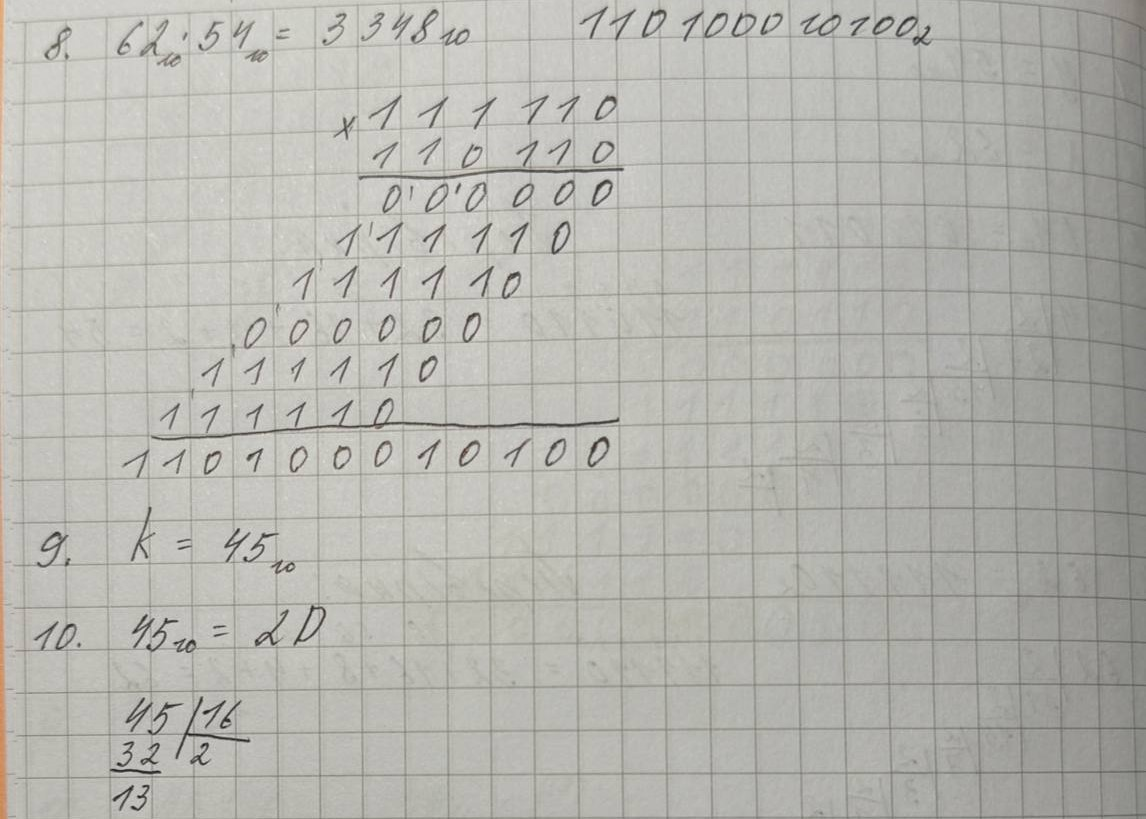 8. 62₁₀ · 54₁₀ = 3348₁₀ 110100010100₂
x 111110
110110
000000
111110
111110
000000
111110
111110
110100010100
9. k = 45₁₀
10. 45₁₀ = 2D
45 16
32 2
13